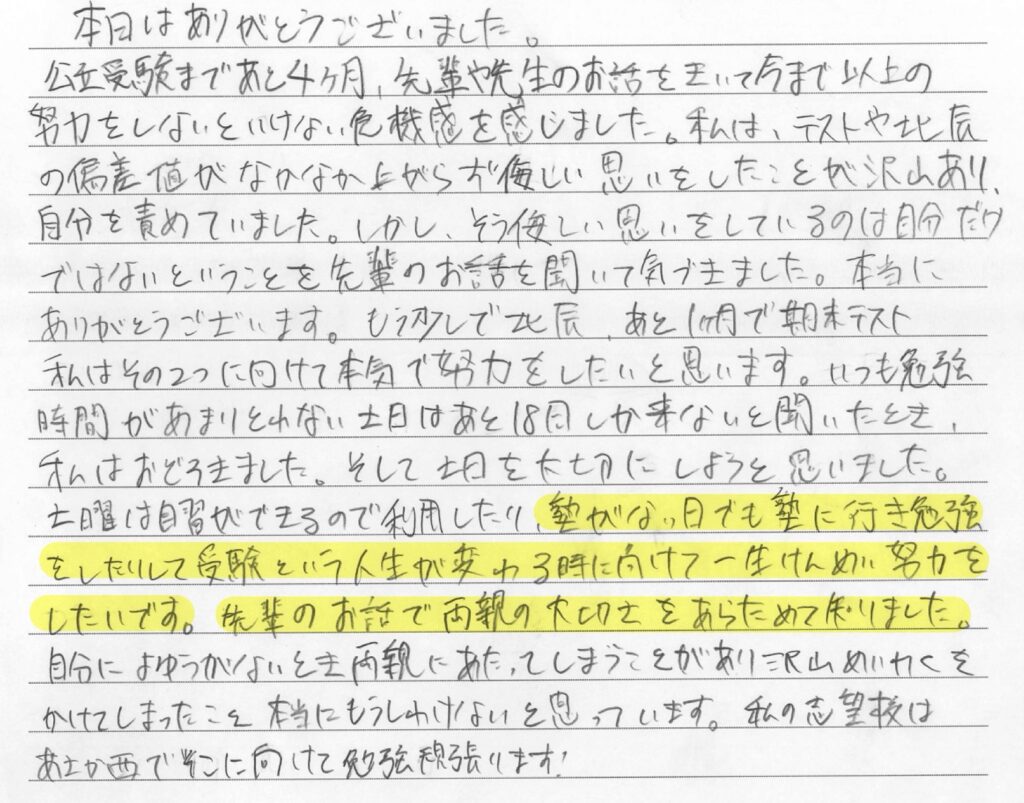 本日はありがとうございました。
公立受験まであと4ヶ月、先輩や先生のお話をきいて今まで以上の
努力をしないといけない危機感を感じました。私は、テストや北辰
の偏差値がなかなか上がらず悔しい思いをしたことが沢山あり、
自分を責めていました。しかし、そう悔しい思いをしているのは自分だけ
ではないということを先輩のお話を聞いて気づきました。本当に
ありがとうございます。もう少しで北辰、あと1ヶ月で期末テスト
私はその2つに向けて本気で努力をしたいと思います。いつも勉強
時間があまりとれない土日はあと18回しか来ないと聞いたとき、
私はおどろきました。そして土日を大切にしようと思いました。
土曜は自習ができるので利用したり、塾がない日でも塾に行き勉強
をしたりして受験という人生が変わる時に向けて一生けんめい努力を
したいです。先輩のお話で両親の大切さをあらためて知りました。
自分によゆうがないとき両親にあたってしまうことがあり沢山めいわくを
かけてしまったこと本当にもうしわけないと思っています。私の志望校は
西でそこに向けて勉強頑張ります!